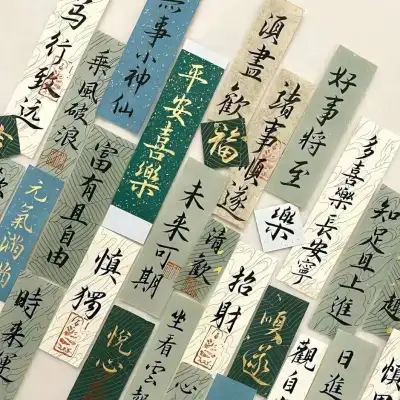 马行致远
無事小神仙
平安喜樂
須盡歡
諸事順遂
好事將至
乘風破浪
福
多喜樂長安寧
知足且上進
富有且自由
未來可期
清歡
樂
趣
元氣滿滿
慎獨
招財
順遂
時來運
悦心
坐看雲
心
觀自
日進
慎